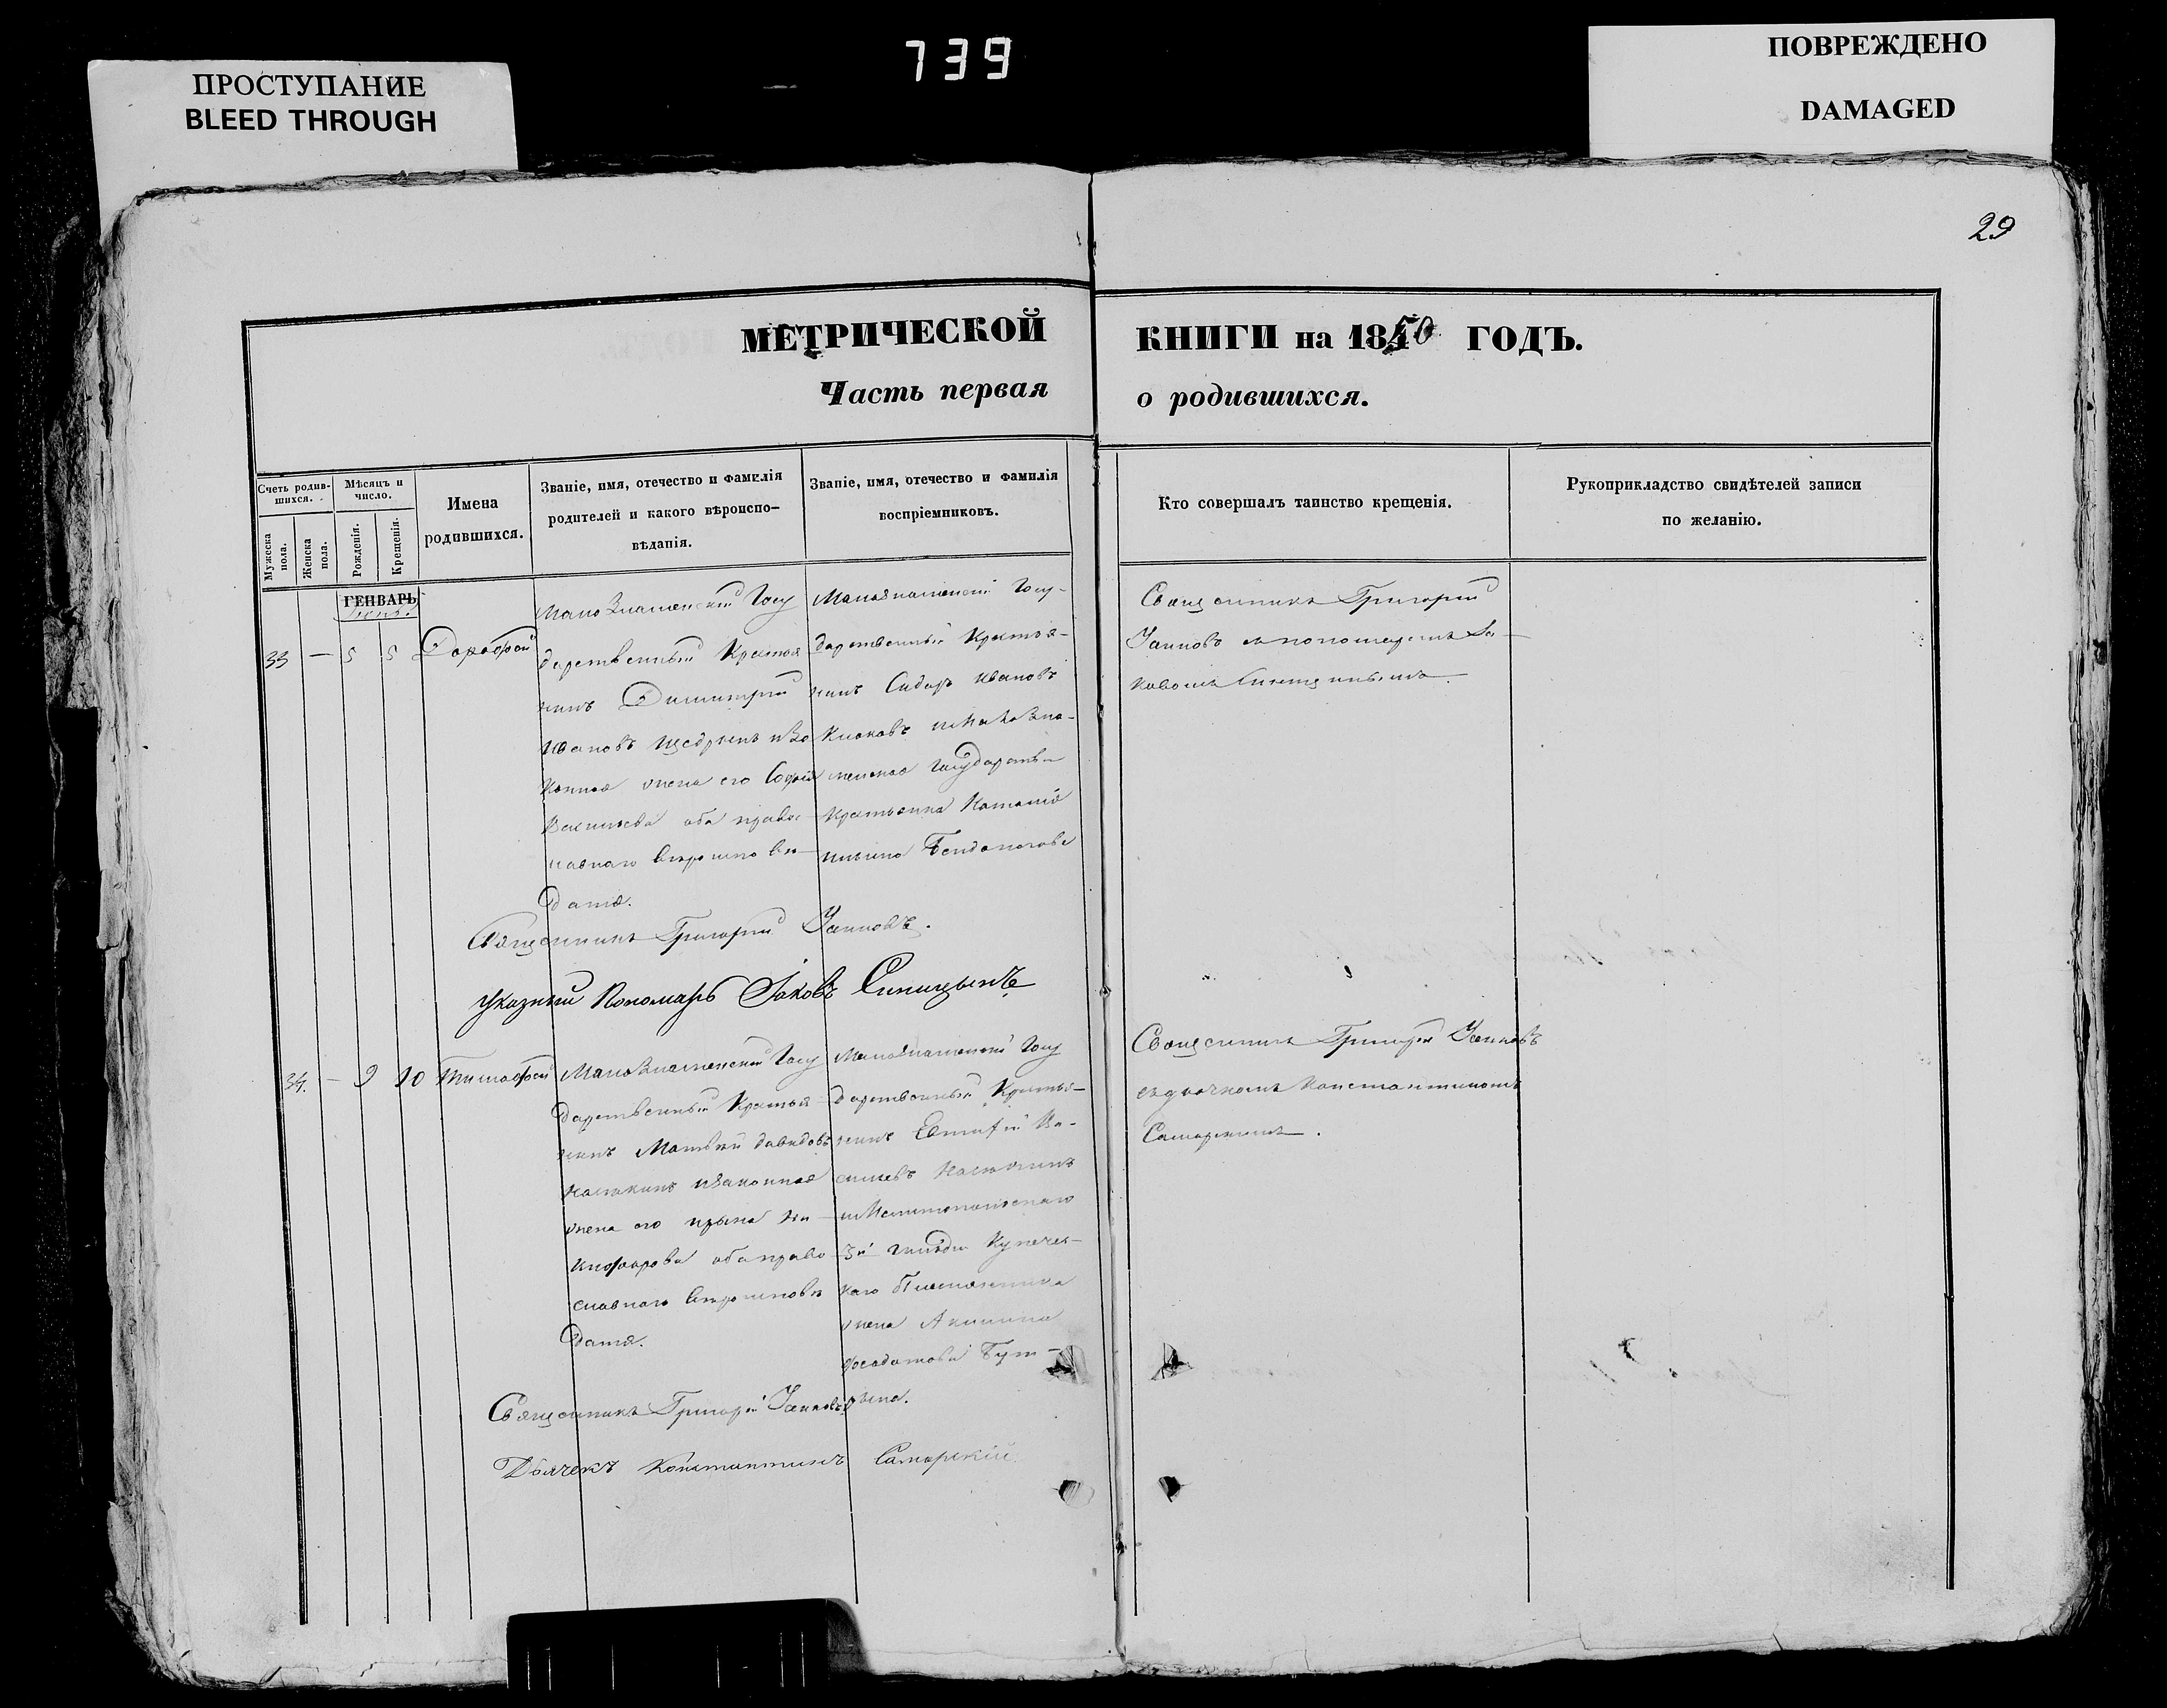 739
ПРОСТУПАНИЕ
BLEED THROUGH
ПОВРЕЖДЕНО
DAMAGED
29
МЕТРИЧЕСКОЙ КНИГИ на 1850 ГОДЪ.
Часть первая о родившихся.
Счетъ родив-
шихся.
Мужеска
пола.
Женска
пола.
Мѣсяцъ и
число.
Рожденія.
Крещенія.
Имена
родившихся.
Званіе, имя, отечество и фамилія
родителей и какого вѣроиспо-
вѣданія.
Званіе, имя, отечество и фамилія
воспріемниковъ.
Кто совершалъ таинство крещенія.
Рукоприкладство свидѣтелей записи
по желанію.
ГЕНВАРЬ
33 — 5 5 Дорофей
Малознаменскій Госу
дарственный Крестья
нинъ Димитрій
Ивановъ Щедринъ и за
конная жена его Софія
Васильева оба правос
лавнаго вѣроисповѣ
данія.
Малознаменскій Госу-
дарственный Крестья-
нинъ Сидоръ Ивановъ
и Малозна-
менская Государств
Крестьянка Наталія
Священникъ Григорій
съ пономаремъ Іа-
ковомъ Синицынымъ.
Священникъ Григорій
Указный Пономарь Іаковъ Синицынъ
34. — 9 10 Тимофей
Малознаменскій Госу
дарственный Крестья
нинъ Матвѣй Давидовъ
и законная
жена его Ирина Ни
кифорова оба право
славнаго вѣроисповѣ
данія.
Малознаменскій Госу
дарственный Крестья-
нинъ Евтифій Ва-
сильевъ
и Мелитопольскаго
3й гильдіи Купечес-
каго Племянника
жена Акилина
Священникъ Григорій
съ дьячкомъ Константиномъ
Самарскимъ.
Священникъ Григорій
Дьячекъ Константинъ Самарскій